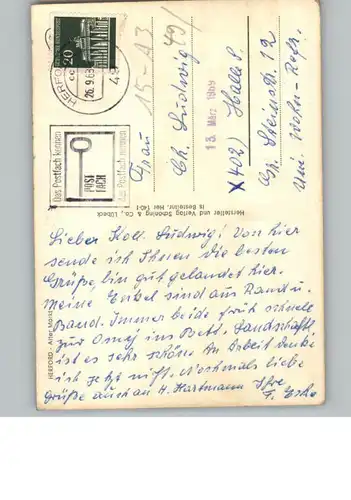 DEUTSCHE BUNDESPOST
20
HERFORD
26.9.68
49
Das Postfach kennen
POST
FACH
Das Postfach benennen
15-A3
Frau
Ch. Ludwig
49/
13. März 1969
X402) Halle S.
Gr. Steinstr. 12
Hersteller und Verlag Schöning & Co., Lübeck
Is Bestellnr. Her 140
HERFORD - Alter Markt
Lieber Koll. Ludwig! Von hier
sende ich Ihnen die besten
Grüße, bin gut gelandet hier.
Meine Enkel sind aus Rand u.
Band. Immer beide früh schnell
zur Oma ins Bett. Landschaftl.
ist es sehr schön. An Arbeit denke
ich jetzt nicht. Nochmals liebe
Grüße auch an H. Hartmann Ihre
F.